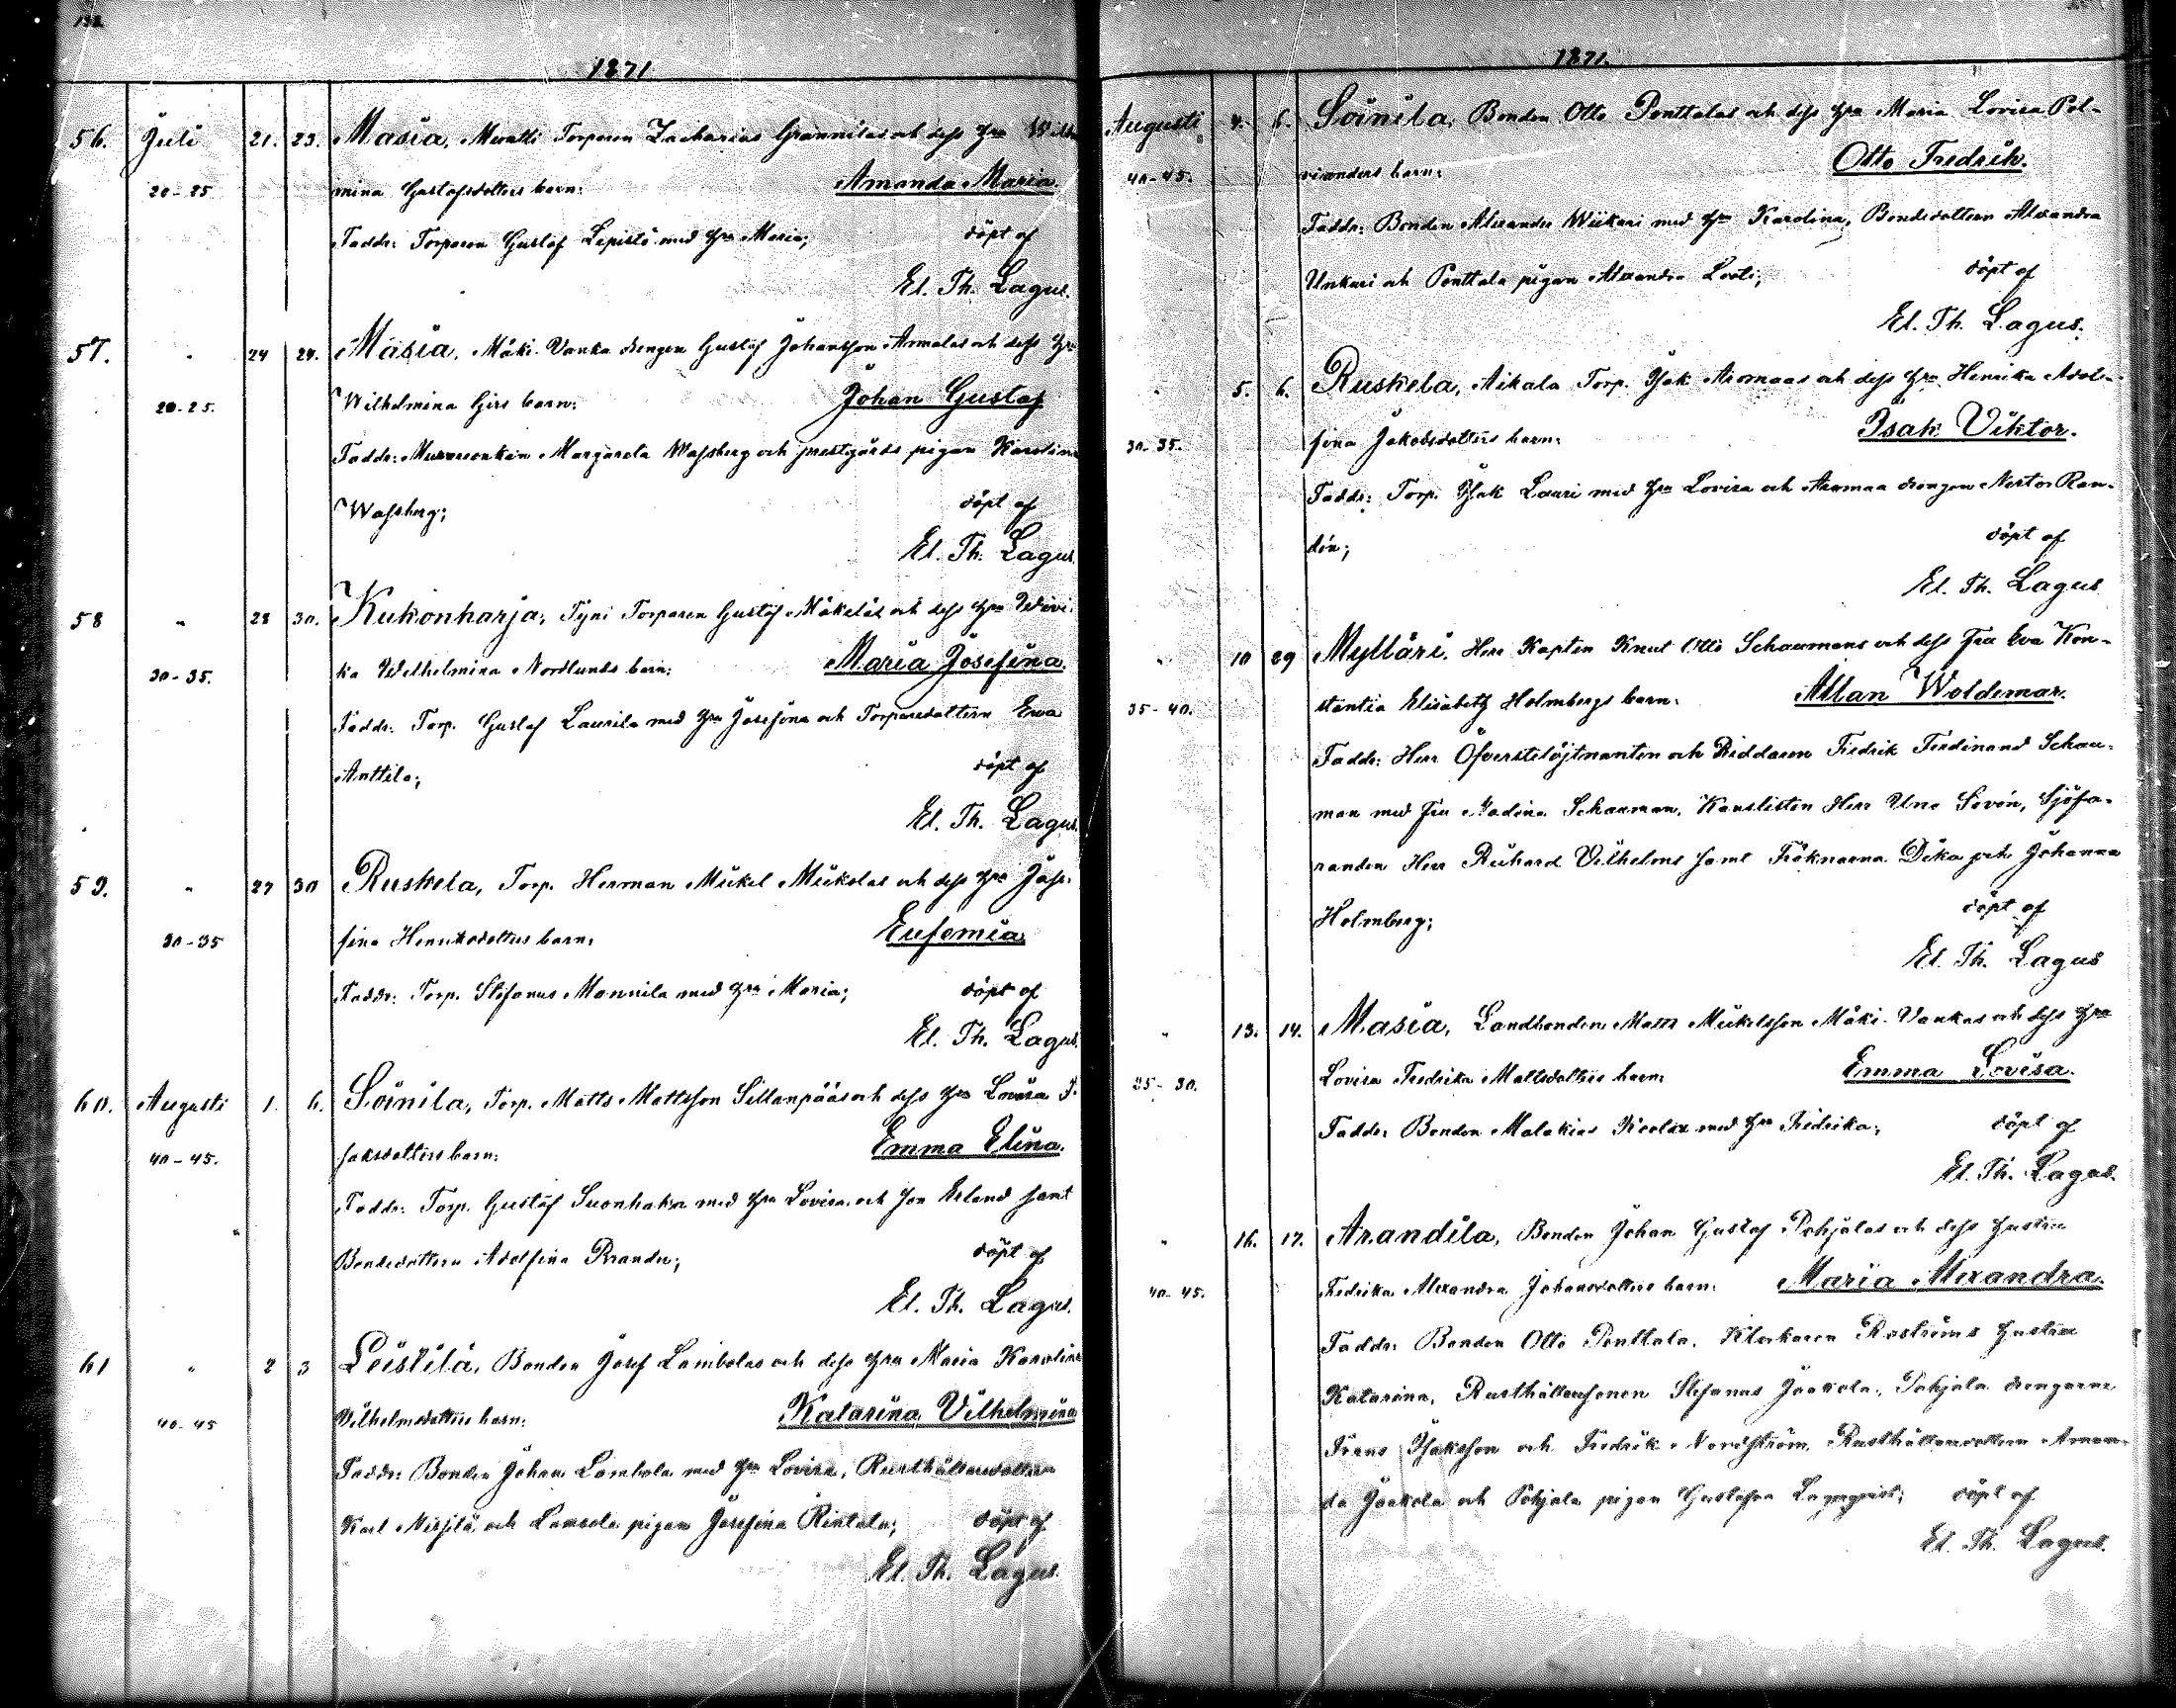 132.
1871
56. Juli 21. 23. Masia, Muratti Torparen Zacharias Grannilas och dess hu Wilhel
20-25 mina Gustafsdotters barn: Amanda Maria.
Faddr: Torparen Gustaf Lepistö med hu Maria; döpt af
El. Th. Lagus.
57. " 24 24. Masia, Mäki-Vanka drengen Gustaf Johansson Armalas och dess hu
20-25. Wilhelmina Girs barn: Johan Gustaf
Faddr: Margareta Wassberg och prestgårds pigan Karolina
Wassberg; döpt af
El. Th. Lagus
58 " 28 30. Kukonharja, Tyni Torparen Gustaf Mäkeläs och dess hu Ulrivi
30-35. ka Wilhelmina Nordlunds barn: Maria Josefina.
Faddr: Torp. Gustaf Laurila med hu Josefina och Torparedottern Ewa
Anttila; döpt af
El. Th. Lagus.
59. " 27 30 Ruskela, Torp. Herman Mickel Mickolas och dess hu Jose-
30-35 fina Henriksdotters barn: Eufemia
Faddr: Torp. Stefanus Mannila med hu Maria; döpt af
El. Th. Lagus.
60. Augusti 1. 6. Soinila, Torp. Matts Mattsson Sillanpääs och dess hu Lovisa I-
40-45. saksdotters barn: Emma Elina.
Faddr: Torp. Gustaf Suonhaka med hu Lovisa och son Erland samt
Bondedottern Adolfina Prander; döpt af
El. Th. Lagus.
61 " 2 3 Leistilä, Bonden Josef Lambolas och dess hu Maria Karolina
40-45 Vilhelmsdotters barn: Katarina Vilhelmina
Faddr: Bonden Johan Lambola med hu Lovisa, Rusthållaredottern
Karl och pigan Josefina Rintala; döpt af
El. Th. Lagus.
1871.
Augusti 4. 6. Soinila, Bonden Otto Penttalas och dess hu Maria Lovisa Pol-
40-45. vianders barn: Otto Fredrik.
Faddr: Bonden Alexander Wiikari med hu Karolina, Bondedottern Alexandra
Unkuri och Penttala pigan Alexandra Lovti; döpt af
El. Th. Lagus.
" 5. 6. Ruskela, Aikala Torp. Isak Aromaas och dess hu Henrika Adol-
30-35. fina Jakobsdotters barn: Isak Viktor.
Faddr: Torp. Isak Lauri med hu Lovisa och Aromaa drengen Nestor Ran-
din; döpt af
El. Th. Lagus
" 10 29 Mylläri. Herr Kapten Knut Otto Schaumans och dess Fru Eva Kon-
35-40. stantia Elisabeth Holmbergs barn: Allan Woldemar.
Faddr: Herr Öfverstelöjtnanten och Riddaren Fredrik Ferdinand Schau-
man med Fru Nadina Schauman, Kanslisten Herr Uno Sirén, Sjöfa-
randen Herr Richard Vilhelms samt Fröknarna Dika och Johanna
Holmberg; döpt af
El. Th. Lagus
" 13. 14. Masia, Landbonden Matts Mickelsson Mäki-Vankas och dess hu
25-30. Lovisa Fredrika Mattsdotters barn: Emma Lovisa.
Faddr: Bonden Malakias med hu Fredrika; döpt af
El. Th. Lagus.
" 16. 17. Arandila, Bonden Johan Gustaf Pohjalas och dess hustru
40-45. Fredrika Alexandra Johansdotters barn: Maria Alexandra.
Faddr: Bonden Otto Penttala, Klockaren Roströms hustru
Katarina, Rusthållaresonen Stefanus Jaakola, Pohjala drengarne
Frans Isaksson och Fredrik Nordström, Rusthållaredottern Aman-
da Jaakola och Pohjala pigan Gustafva Lagerqvist; döpt af
El. Th. Lagus.